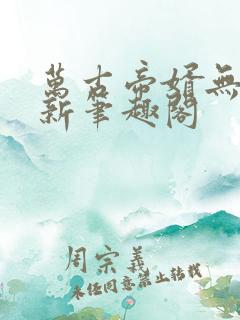 萬古帝婿無
新筆趣閣
周宗義
未经同意禁止转载